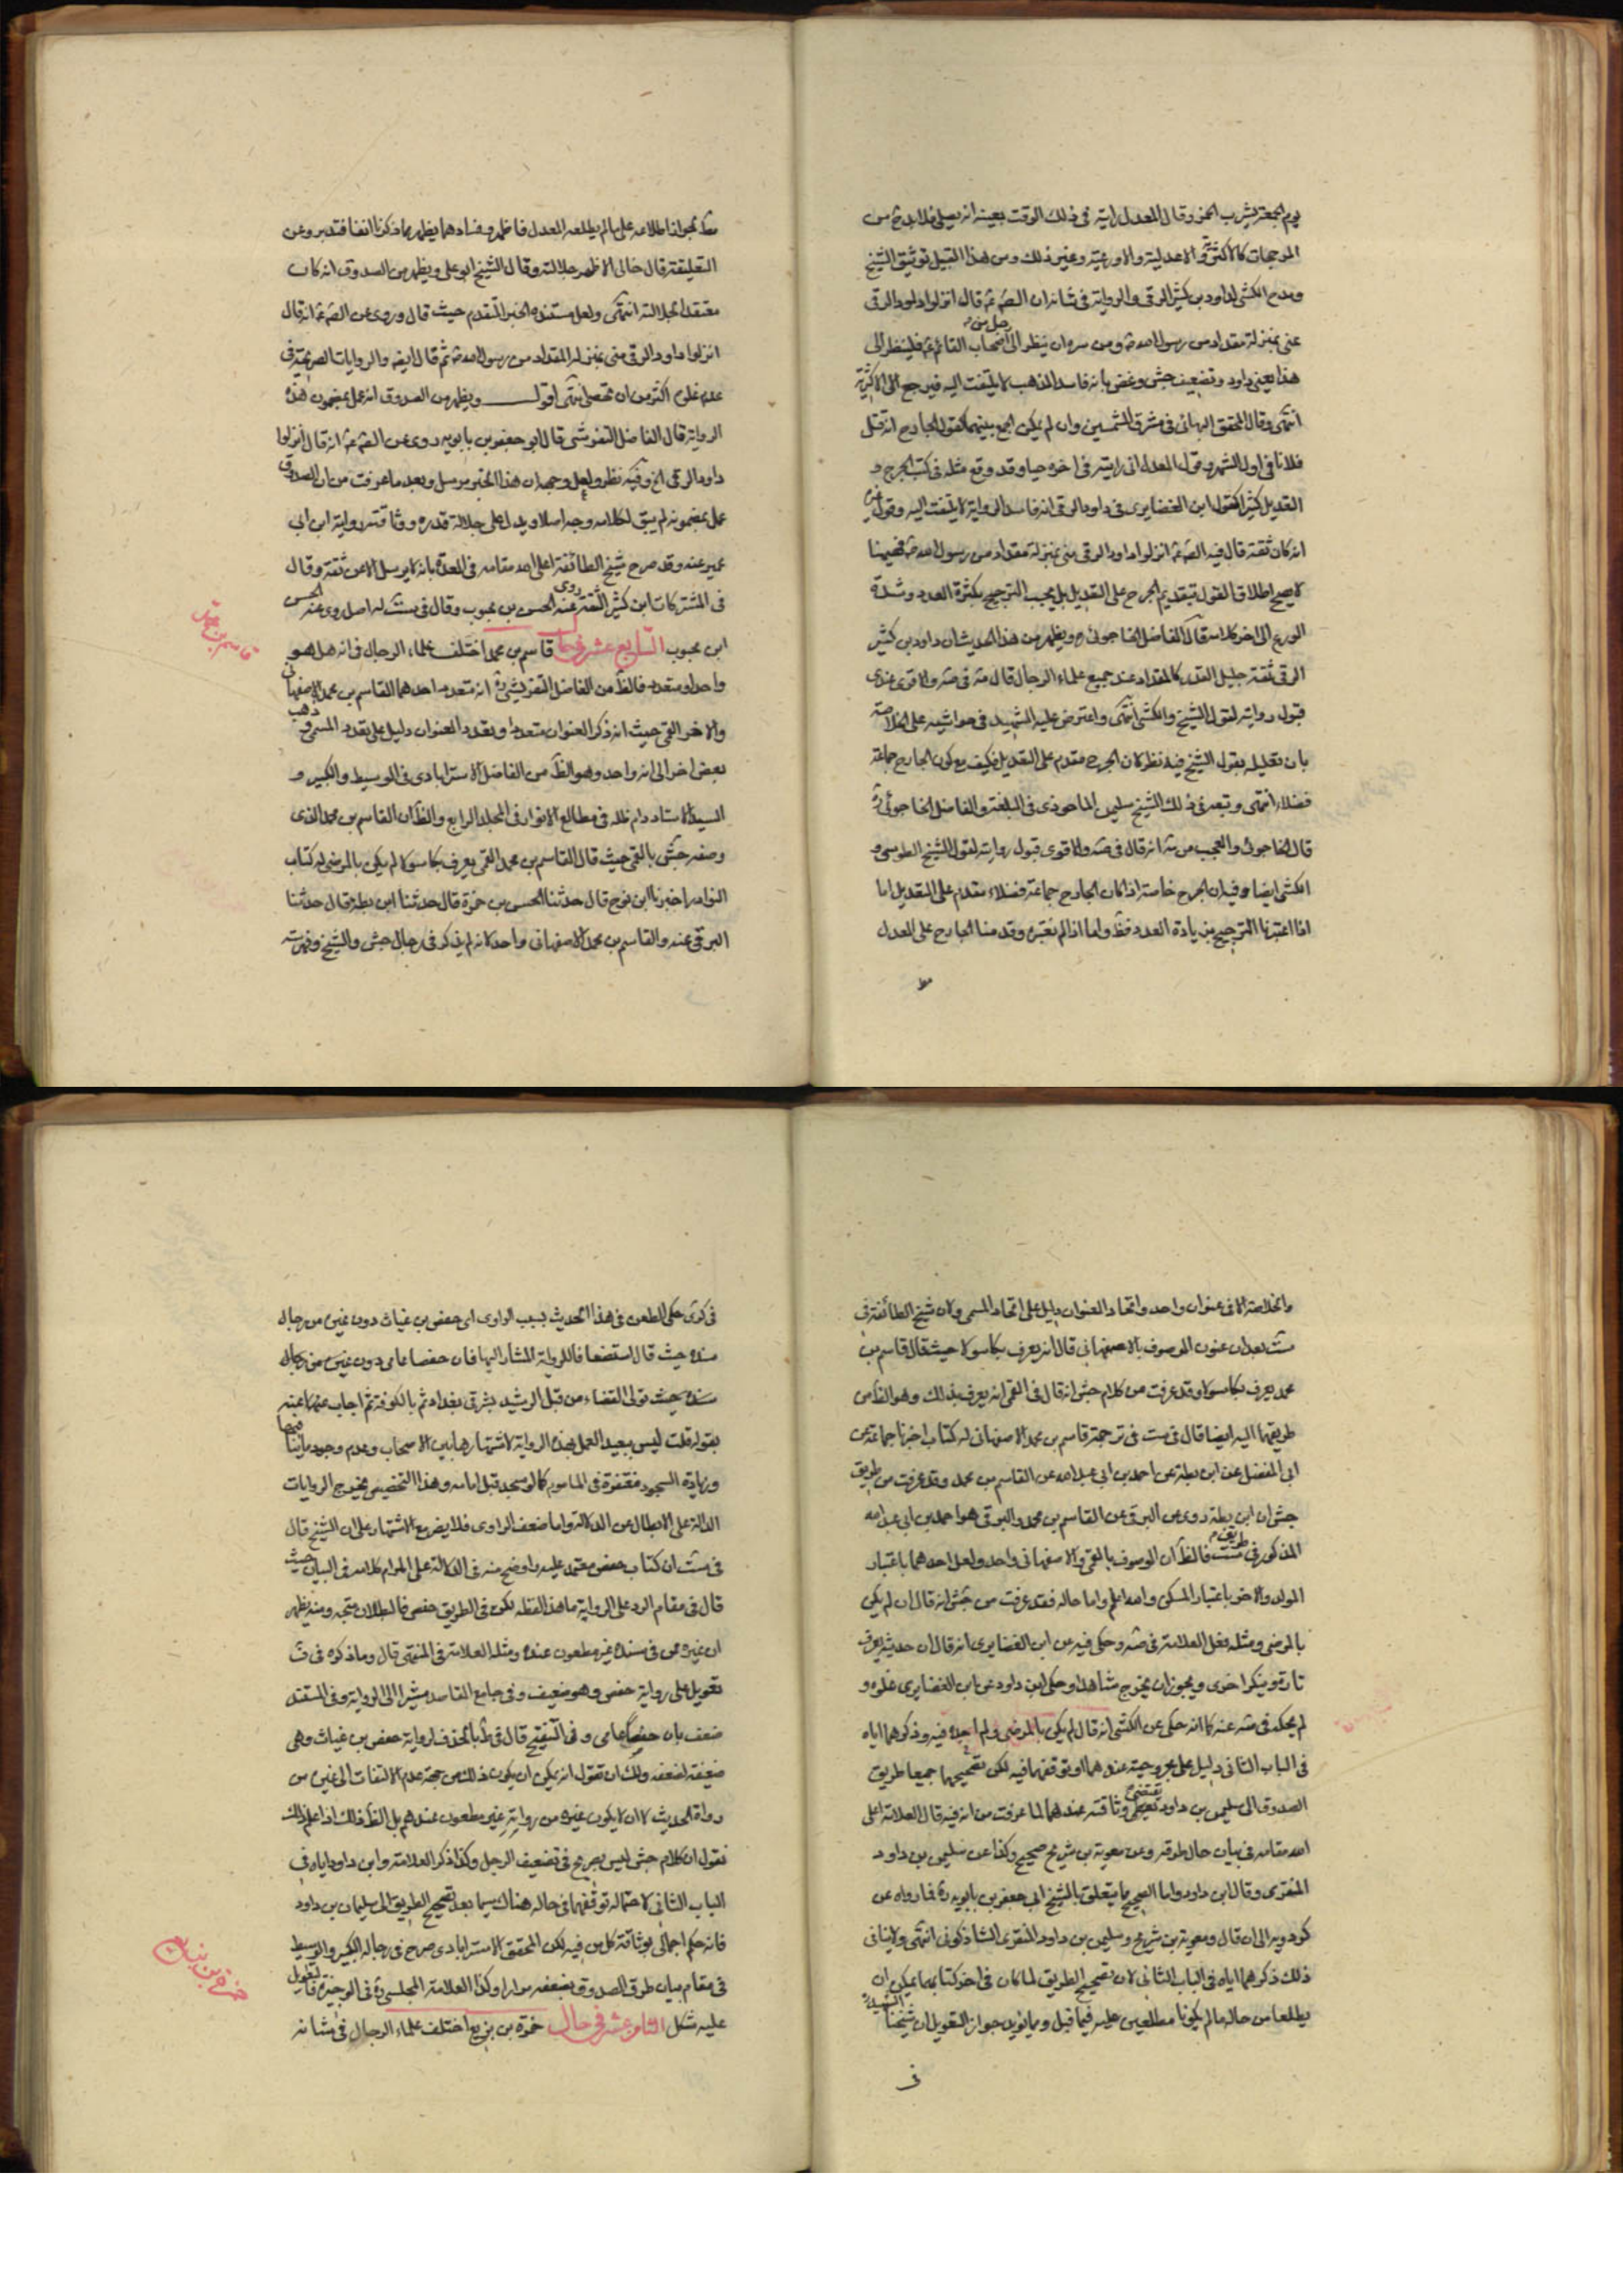 يوم الجمعة يشرب الخمر وقال المعدل رايته في ذلك الوقت بعينه انه يصلي فلا بد من
المرجحات كالاكثرية والاعدلية والاورعية وغير ذلك ومن هذا القبيل توثيق الشيخ
ومدح الكشي لداود بن كثير الرقي والرواية في شانه ان الصّم قال انزلوا داود الرقي
عني بمنزلة مقداد من رسول الله ومن سره ان ينظر الى رجل من اصحاب القائم فلينظر الى
هذا يعني داود وتضعيف جش وغض بانه فاسد المذهب لا يلتفت اليه فيرجع الى الاكثرية
انتهى وقال المحقق البهائي في مشرق الشمسين وان لم يمكن الجمع بينهما كقول الجارح انه قتل
فلانا في اول الشهر وقول المعدل اني رايته في اخره حيا وقد وقع مثله في كتب الجرح و
التعديل كثيرا كقول ابن الغضايري في داود الرقي انه فاسد الرواية لا يلتفت اليه وقول غيره
انه كان ثقة قال فيه الصم انزلوا داود الرقي مني بمنزلة مقداد من رسول الله فهيهنا
لا يصح اطلاق القول بتقديم الجرح على التعديل بل يجب الترجيح بكثرة العدد وشدة
الورع الى اخر كلامه قال الفاضل الخاجوئي ره ويظهر من هذا الحديث ان داود بن كثير
الرقي ثقة جليل القدر كالمقداد عند جميع علماء الرجال قال مة في صة والاقوى عندي
قبول روايته لقول الشيخ والكشي انتهى واعترض عليه الشهيد في حواشيه على الخلاصة
بان تعليله بقول الشيخ فيه نظر لان الجرح مقدم على التعديل فكيف مع كون الجارح جماعة
فضلاء انتهى وتبعه في ذلك الشيخ سليمن الماحوذي في البلغة والفاضل الخاجوئي ره
قال الخاجوئي والعجب من مة انه قال في صة والاقوى قبول روايته لقول الشيخ الطوسي و
الكشي ايضا وفيه ان الجرح خاصة اذا كان الجارح جماعة فضلاء مقدم على التعديل اما
اذا اعتبرنا الترجيح بزيادة العدد فظ واما اذا لم نعتبره وقدمنا الجارح على المعدل
مط لجواز اطلاعه على ما لم يطلعه المعدل فاظهر وفسادهما يظهر مما ذكرنا انفا فتدبر وعن
التعليقة قال خالي الاظهر جلالته وقال الشيخ ابو علي ويظهر من الصدوق انه كان
معتقدا بجلالته انتهى ولعل مستنده الخبر المتقدم حيث قال وروى عن الصم انه قال
انزلوا داود الرقي مني بمنزلة المقداد من رسول الله ثم قال ايضه والروايات الصريحة في
عدم غلوه اكثر من ان تحصى انتهى اقول ويظهر من الصدوق انه عمل بمضمون هذه
الرواية قال الفاضل التفرشي قال ابو جعفر بن بابويه روى عن الصم انه قال انزلوا
داود الرقي الخ وفيه نظر ولعل وجهه ان هذا الخبر مرسل وبعد ما عرفت من ان الصدوق
عمل بمضمونه لم يبق لكلامه وجه اصلا ويدل على جلالة قدره ووثاقته رواية ابن ابي
عمير عنه وقد صرح شيخ الطائفة اعلى الله مقامه في العدة بانه لا يرسل الا عن ثقة وقال
في المشتركات ابن كثير الثقة روى عنه الحسن بن محبوب وقال في ست له اصل روى عنه الحسن
ابن محبوب السابع عشر في حال قاسم بن محمد اختلف علماء الرجال في انه هل هو
قاسم بن محمد
واحد او متعدد فالظ من الفاضل التفريشي ره انه متعدد احدهما القاسم بن محمد الاصفهاني
والاخر القمي حيث انه ذكر العنوان متعددا وتعدد العنوان دليل على تعدد المسمى وذهب
بعض اخر الى انه واحد وهو الظ من الفاضل الاسترابادي في الوسيط والكبير و
السيد الاستاد دام ظله في مطالع الانوار في المجلد الرابع والظ ان القاسم بن محمد الذي
وصفه جش بالقمي حيث قال القاسم بن محمد القمي يعرف بكاسولا لم يكن بالمرضي له كتاب
النوادر اخبرنا ابن نوح قال حدثنا الحسن بن حمزة قال حدثنا ابن بطة قال حدثنا
البرقي عنه والقاسم بن محمد الاصفهاني واحد لانه لم يذكر في رجال جش والشيخ وفهرسته
والخلاصة الا في عنوان واحد واتحاد العنوان دليل على اتحاد المسمى ولان شيخ الطائفة في
ست بعد ان عنون الموصوف بالاصفهاني قال انه يعرف بكاسولا حيث قال قاسم بن
محمد يعرف بكاسولا وقد عرفت من كلام جش انه قال في القمي انه يعرف بذلك وهو الظ من
طريقهما اليه ايضا قال في ست في ترجمة قاسم بن محمد الاصفهاني له كتاب اخبرنا جماعة عن
ابي المفضل عن ابن بطة عن احمد بن ابي عبد الله عن القاسم بن محمد وقد عرفت من طريق
جش ان ابن بطة روى عن البرقي عن القاسم بن محمد والبرقي هو احمد بن ابي عبد الله
المذكور في طريق ست فالظ ان الموصوف بالقمي والاصفهاني واحد ولعل احدهما باعتبار
المولد والاخر باعتبار المسكن والله اعلم واما حاله فقد عرفت من جش انه قال ان لم يكن
بالمرضي ومثله فعل العلامة في صه وحكى فيه عن ابن الغضايري انه قال ان حديثه يعرف
تارة وينكر اخرى ويجوز ان يخرج شاهدا وحكى ابن داود عن ابن الغضايري غلوه و
لم يحكه في صه عنه كما انه حكى عن الكشي انه قال لم يكن بالمرضي ولم اجده فيه وذكرهما اياه
في الباب الثاني دليل على مجروحيته عندهما او توقفهما فيه لكن تصحيحهما جميعا طريق
الصدوق الى سليمن بن داود يقتضي وثاقته عندهما لما عرفت من انه فيه قال العلامة اعلى
الله مقامه في بيان حال طرقه وعن معوية بن شريح صحيح وكذا عن سليمن بن داود
المنقري وقال ابن داود واما الصحيح ما يتعلق بالشيخ ابي جعفر بن بابويه ره فما رواه عن
كردويه الى ان قال ومعوية بن شريح وسليمن بن داود المنقري الشاذكوني انتهى ولا ينافي
ذلك ذكرهما اياه في الباب الثاني لان تصحيح الطريق لما كان في اخر كتابهما يمكن ان
يطلعا من حاله ما لم يكونا مطلعين عليه فيما قبل ومما يؤيد جواز التعويل ان شيخنا الشهيد
في كرى حكى الطعن في هذا الحديث بسبب الراوي اي حفص بن غياث دون غيره من رجال
سنده حيث قال استضعافا للرواية المشار اليها فان حفصا عامي دون غيره من رجال
سنده حيث تولى القضاء من قبل الرشيد بشرقي بغداد ثم بالكوفة ثم اجاب عنها بعينه
بقوله قلت ليس ببعيد العمل بهذه الرواية لاشتهارها بين الاصحاب وعدم وجود ما ينافيها
وزيادة السجود مغتفرة في الماموم كما لو سجد قبل امامه وهذا التخصيص يخرج الروايات
الدالة على الابطال عن الدلالة واما ضعف الراوي فلا يضر مع الاشتهار على ان الشيخ قال
في ست ان كتاب حفص معتمد عليه واوضح منه في الدلالة على المرام كلامه في البيان حيث
قال في مقام الرد على الرواية ما هذا لفظه لكن في الطريق حفص فالبطلان متجه ومنه يظهر
ان غيره من في سنده غير مطعون عنده ومثله العلامة في المنتهى قال وما ذكره في ف
تعويل على رواية حفص وهو ضعيف وفي جامع المقاصد مشيرا الى الرواية وفي المستند
ضعف بان حفصا عامي وفي التنقيح قال في ط بالحذف لرواية حفص بن غياث وهي
ضعيفة لضعفه ولك ان تقول انه يمكن ان يكون ذلك من جهة عدم الالتفات الى غيره من
رواة الحديث لا ان لا يكون غيره من رواته غير مطعون عندهم بل الظ ذلك اذا علم ذلك
نقول ان كلام جش ليس بصريح في تضعيف الرجل وكذا ذكر العلامة وابن داود اياه في
الباب الثاني لاحتماله توقفهما في حاله هناك سيما بعد تصحيح الطريق الى سليمان بن داود
فانه حكم اجمالي بوثاقة كل من فيه لكن المحقق الاسترابادي صرح في رجاله الكبير والوسيط
في مقام بيان طرق الصدوق بضعفه مرارا وكذا العلامة المجلسي ره في الوجيزة فالتعويل
عليه مشكل الثامن عشر في حال حمزة بن بزيع اختلف علماء الرجال في شانه
حمزة بن بزيع